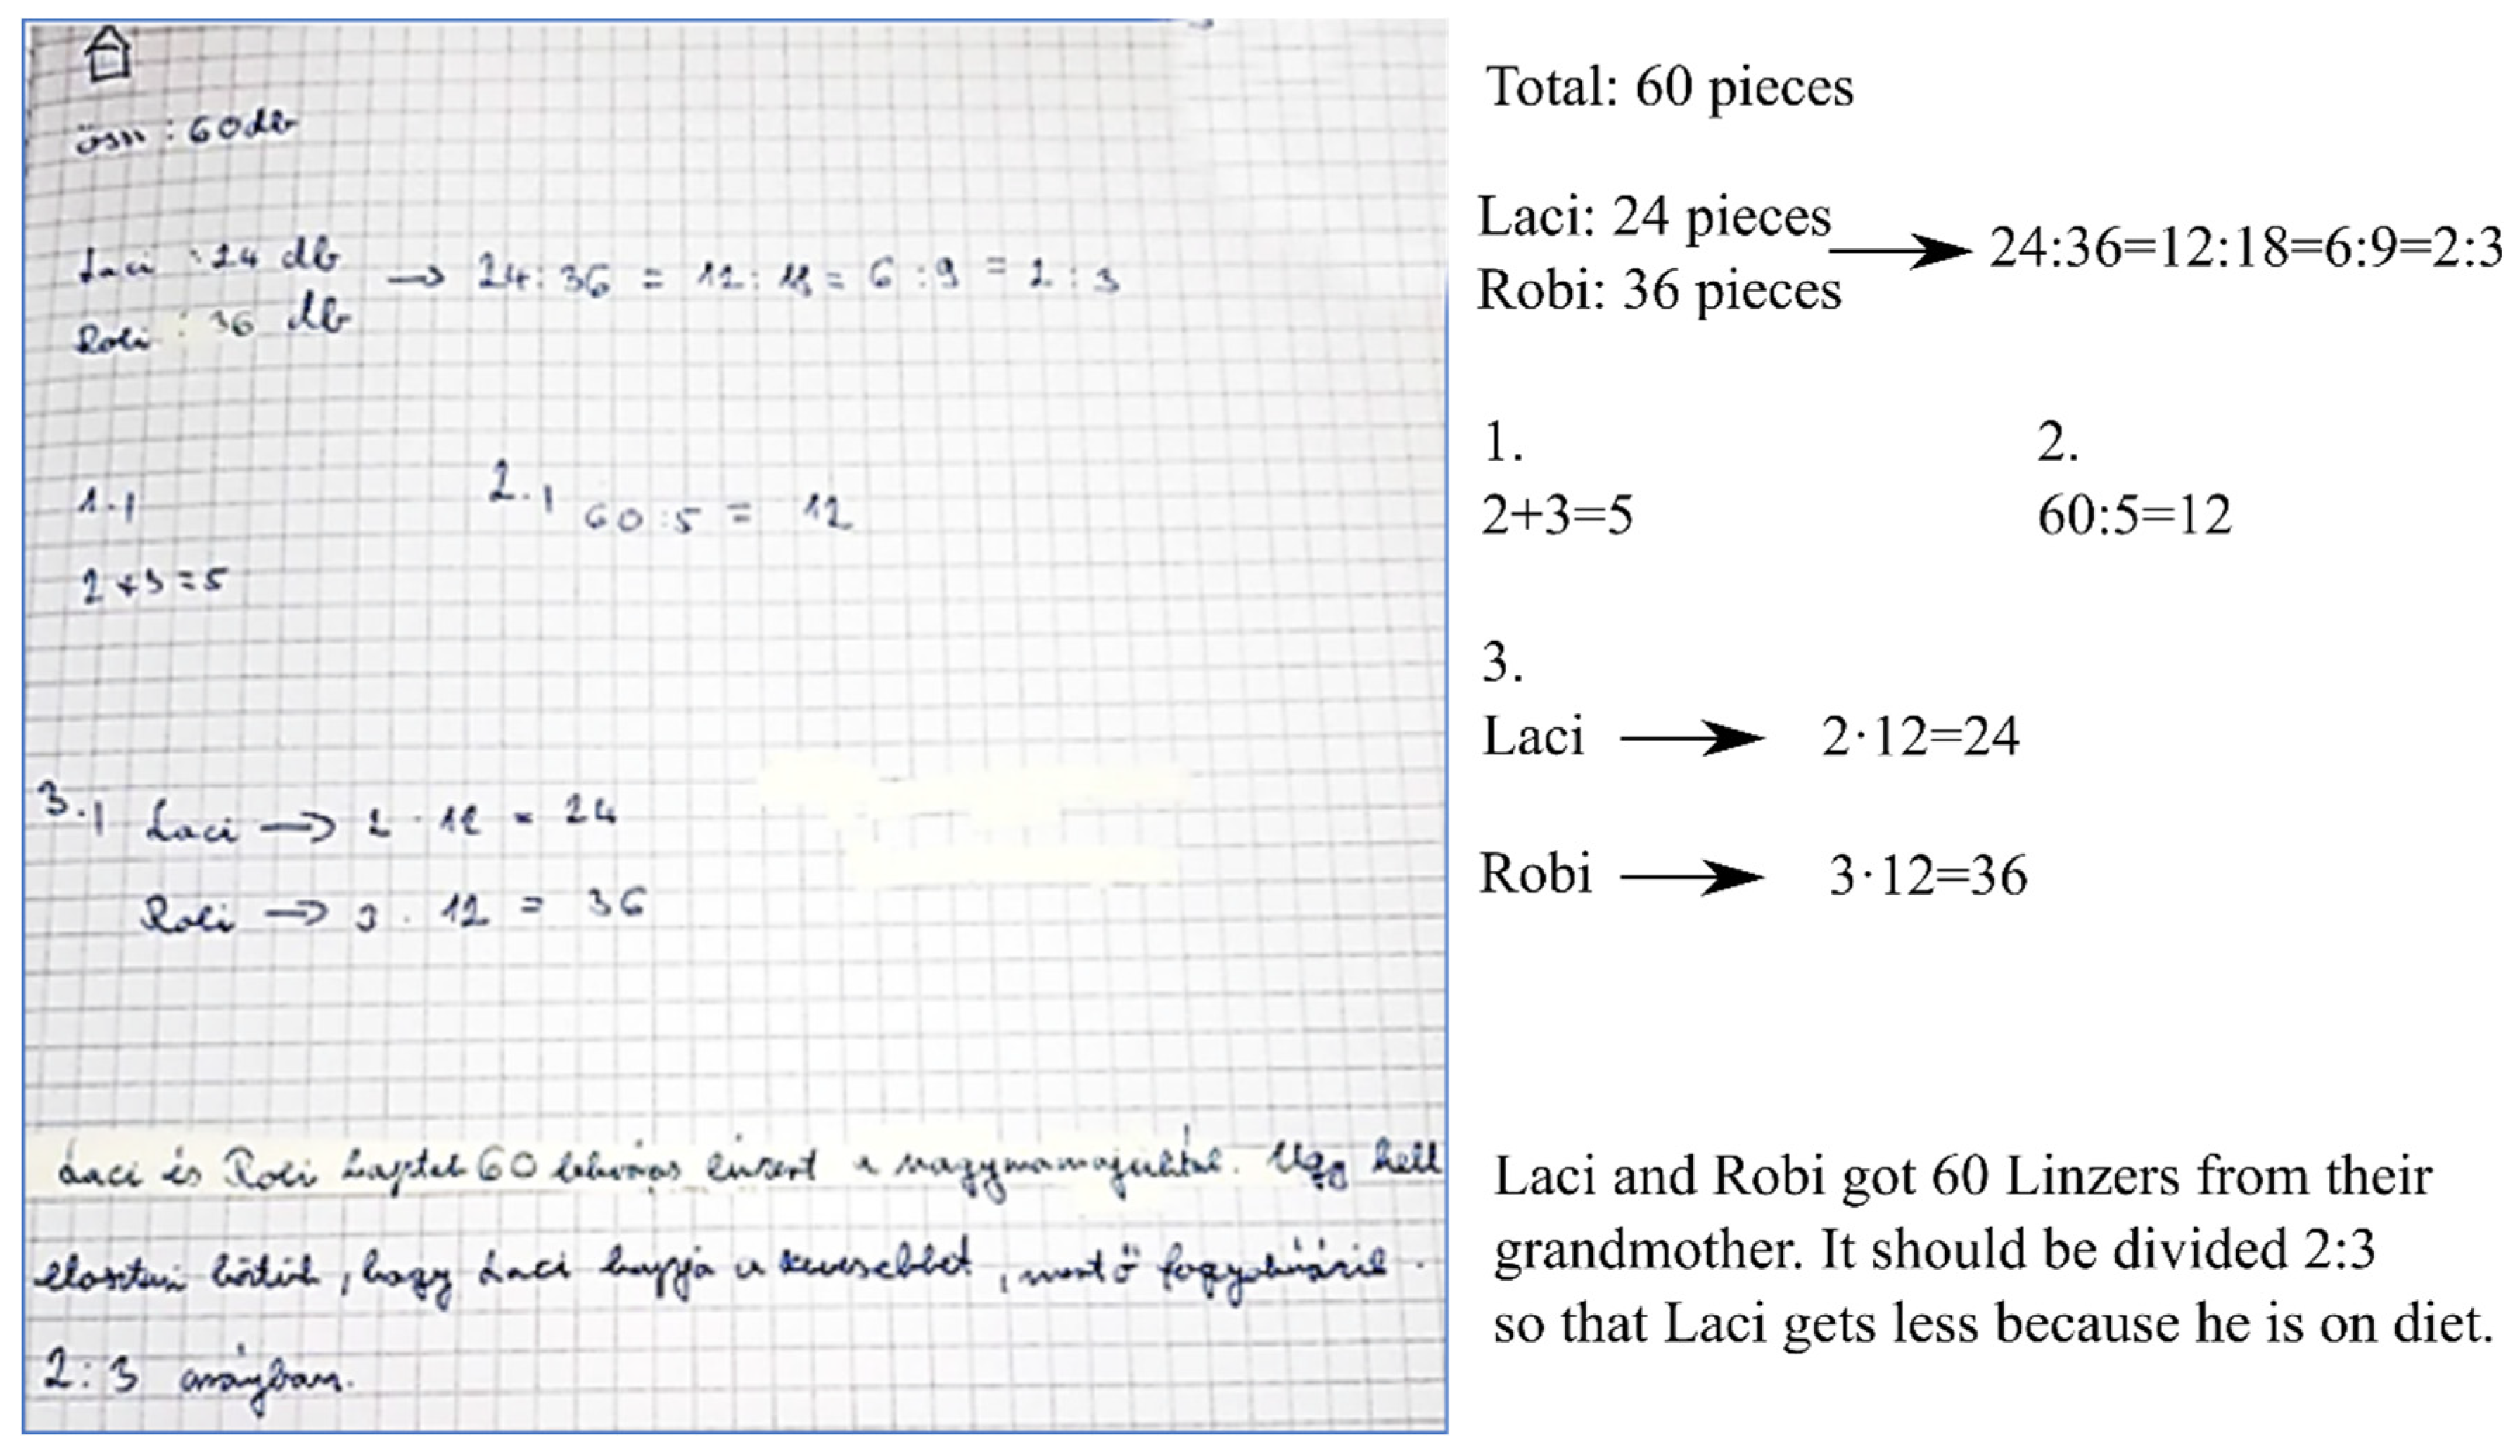 össz : 60 db
Laci : 24 db
Robi : 36 db
→ 24 : 36 = 12 : 18 = 6 : 9 = 2 : 3
1.)
2 + 3 = 5
2.) 60 : 5 = 12
3.) Laci → 2 · 12 = 24
Robi → 3 · 12 = 36
Laci és Robi kaptak 60 lekváros linzert a nagymamájuktól. Úgy kell
elosztani köztük, hogy Laci kapja a kevesebbet, mert ő fogyókúrázik.
2 : 3 arányban.
Total: 60 pieces
Laci: 24 pieces
Robi: 36 pieces
→ 24:36=12:18=6:9=2:3
1.
2+3=5
2.
60:5=12
3.
Laci → 2·12=24
Robi → 3·12=36
Laci and Robi got 60 Linzers from their
grandmother. It should be divided 2:3
so that Laci gets less because he is on diet.